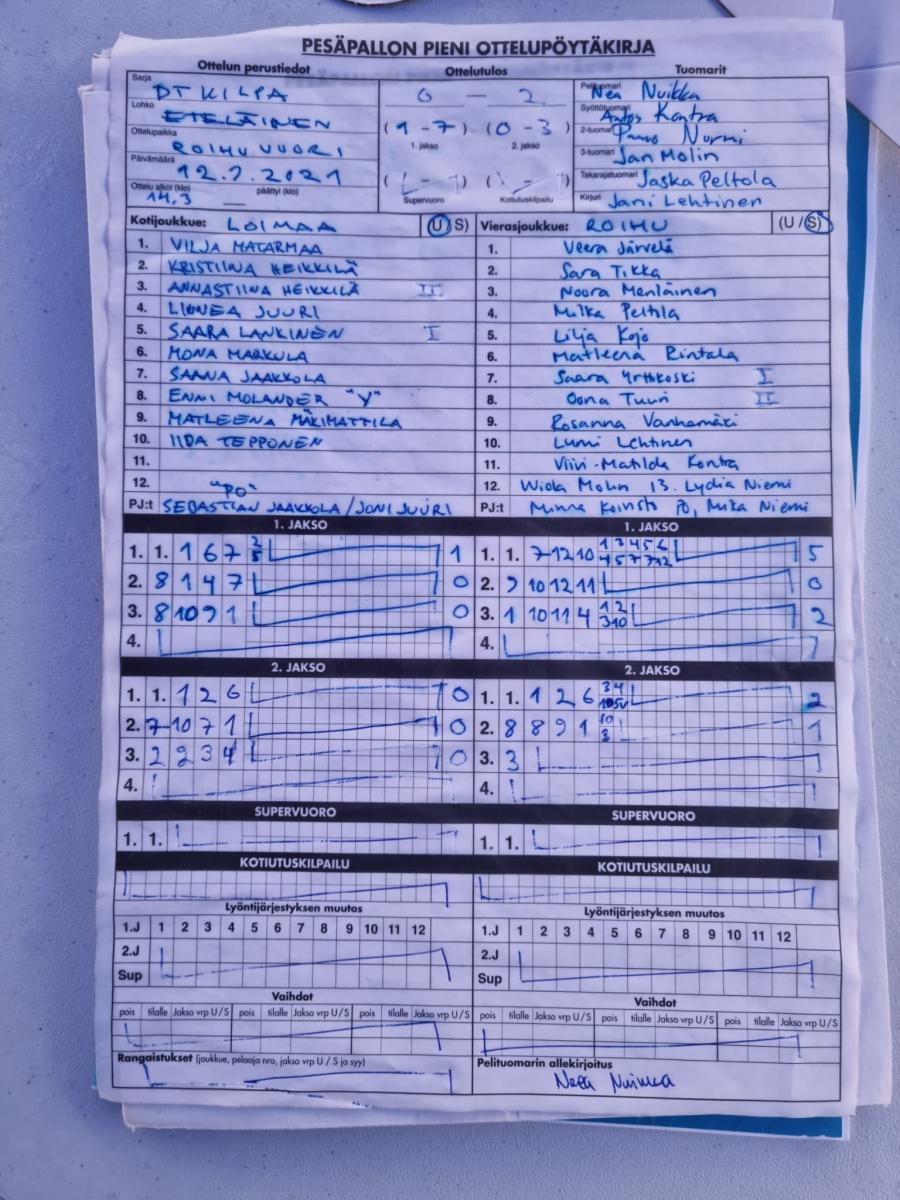 PESÄPALLON PIENI OTTELUPÖYTÄKIRJA
Ottelun perustiedot
Sarja
DT KILPA
Lohko
ETELÄINEN
Ottelupaikka
ROIHUVUORI
Päivämäärä
12.7.2021
Ottelu alkoi (klo) päättyi (klo)
14,3
Ottelutulos
0 — 2
(1 - 7) (0 - 3)
1. jakso 2. jakso
( - ) ( - )
Supervuoro Kotiutuskilpailu
Tuomarit
Pelituomari Nea Nuikka
Syöttötuomari Kontra
2-tuomari Nurmi
3-tuomari Jan Molin
Takarajatuomari Jaska Peltola
Kirjuri Jani Lehtinen
Kotijoukkue: LOIMAA (U / S)
1. VILJA MATARMAA
2. KRISTIINA HEIKKILÄ
3. ANNASTIINA HEIKKILÄ II
4. LINNEA JUURI
5. SAARA LANKINEN I
6. MONA MARKULA
7. SAANA JAAKKOLA
8. ENNI MOLANDER "Y"
9. MATLEENA MÄKIMATTILA
10. IIDA TEPPONEN
11.
12.
"PO"
PJ:t SEBASTIAN JAAKKOLA / JONI JUURI
Vierasjoukkue: ROIHU (U / S)
1. Veera Järvelä
2. Sara Tikka
3. Noora
4. Milka Peltola
5. Lilja Kojo
6. Matleena Rintala
7. Saara Yrttikoski I
8. Oona Tuuri II
9. Rosanna Vanhamäki
10. Lumi Lehtinen
11. Viivi-Matilda Kontra
12. Wiola Molin 13. Lydia Niemi
PJ:t Minna PO, Mika Niemi
1. JAKSO
1. 1. 1 6 7 2 5 1
2. 8 1 4 7 0
3. 8 10 9 1 0
4.
2. JAKSO
1. 1. 1 2 6 0
2. 7-10 7 1 0
3. 2 2 3 4 0
4.
SUPERVUORO
1. 1.
KOTIUTUSKILPAILU
Lyöntijärjestyksen muutos
1.J 1 2 3 4 5 6 7 8 9 10 11 12
2.J
Sup
Vaihdot
pois tilalle Jakso vrp U/S pois tilalle Jakso vrp U/S pois tilalle Jakso vrp U/S
Rangaistukset (joukkue, pelaaja nro, jakso vrp U / S ja syy)
1. JAKSO
1. 1. 7-12 10 1 3 4 5 6 4 5 7 7 12 5
2. 9 10 12 11 0
3. 1 10 11 4 1 2 3 10 2
4.
2. JAKSO
1. 1. 1 2 6 3 4 2
2. 8 8 9 1 10 3 1
3. 3
4.
SUPERVUORO
1. 1.
KOTIUTUSKILPAILU
Lyöntijärjestyksen muutos
1.J 1 2 3 4 5 6 7 8 9 10 11 12
2.J
Sup
Vaihdot
pois tilalle Jakso vrp U/S pois tilalle Jakso vrp U/S pois tilalle Jakso vrp U/S
Pelituomarin allekirjoitus
Nea Nuikka